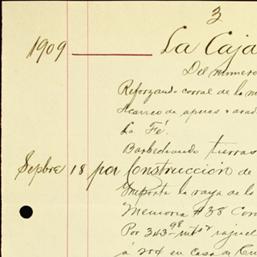 3
1909 La Caja
Del numero
Reforzando corral de la m
Acarreo de
La Fé.
Barbechando tierras
Sepbre 18 por Construccion de
Importe la raya de la
Memoria #38 Con
Por 343.98 mts
á 20¢ en Casa de